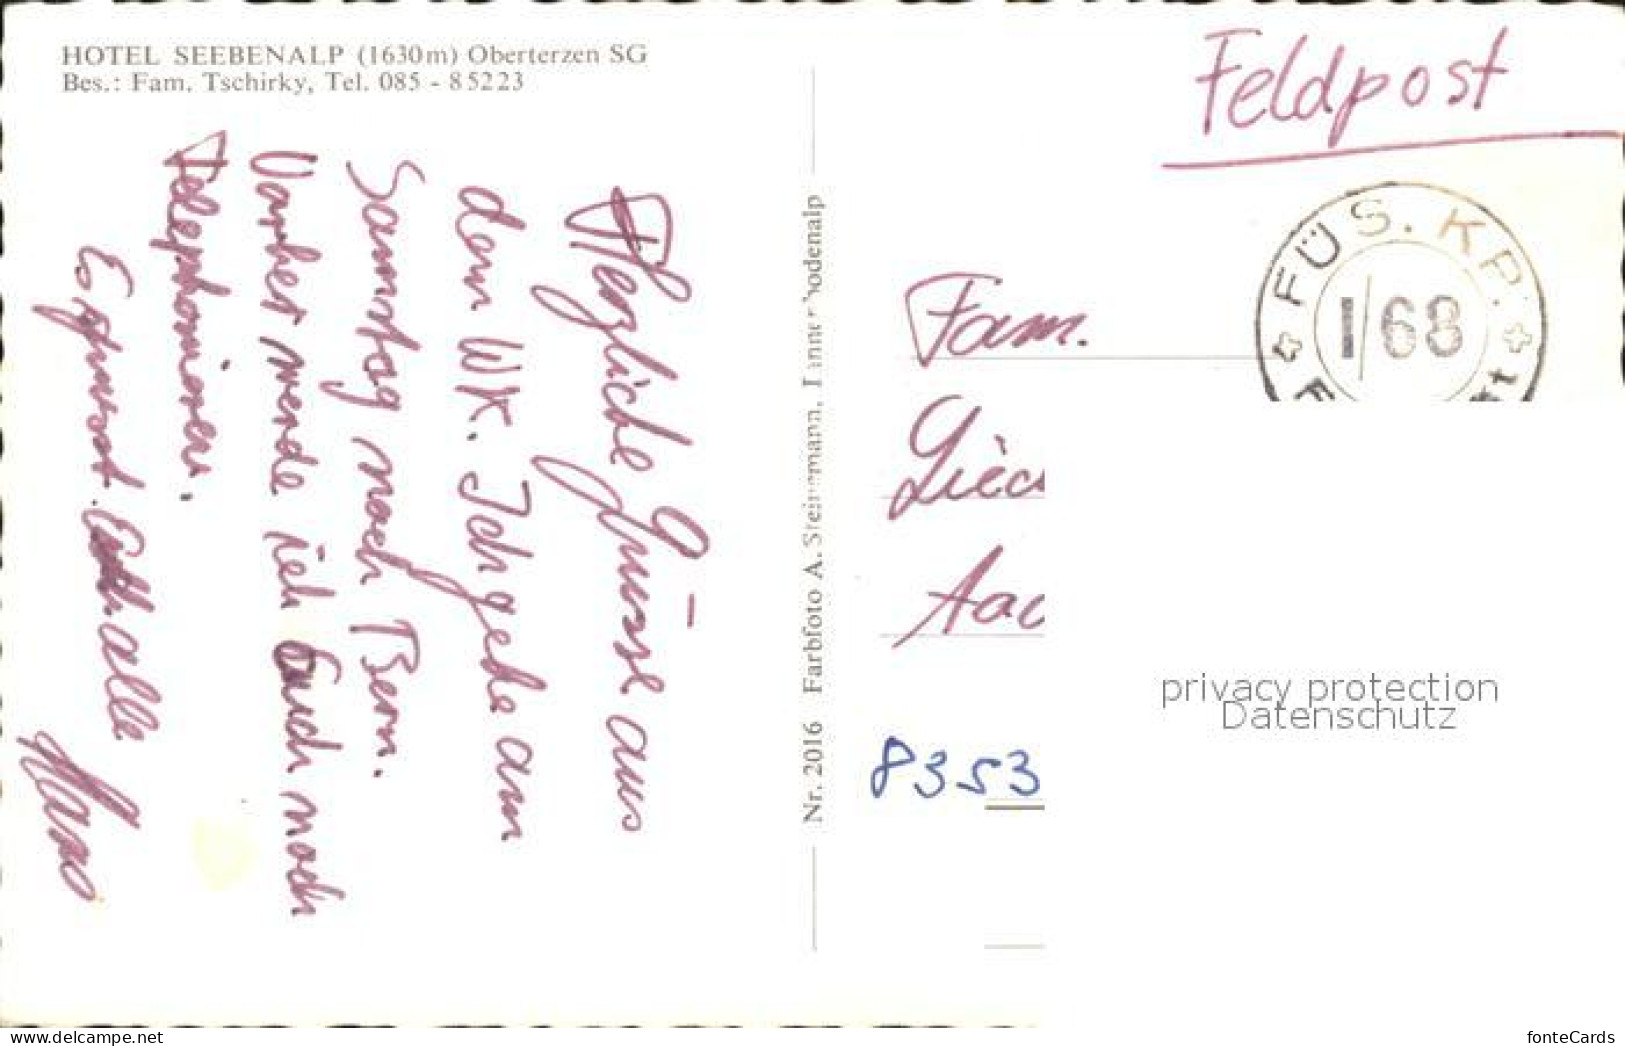 HOTEL SEEBENALP (1630m) Oberterzen SG
Bes.: Fam. Tschirky, Tel. 085 - 85223
Herzliche Grüsse aus
dem WK. Ich gehe am
Samstag nach Bern.
Vorher werde ich Euch noch
Telephonieren.
Es grüsst alle
Nr. 2016 Farbfoto A. Steinmann,
Feldpost
FÜS. KP.
I/68
Fam.
8353
privacy protection
Datenschutz
www.ansichtskartenversand.com
fonteCards